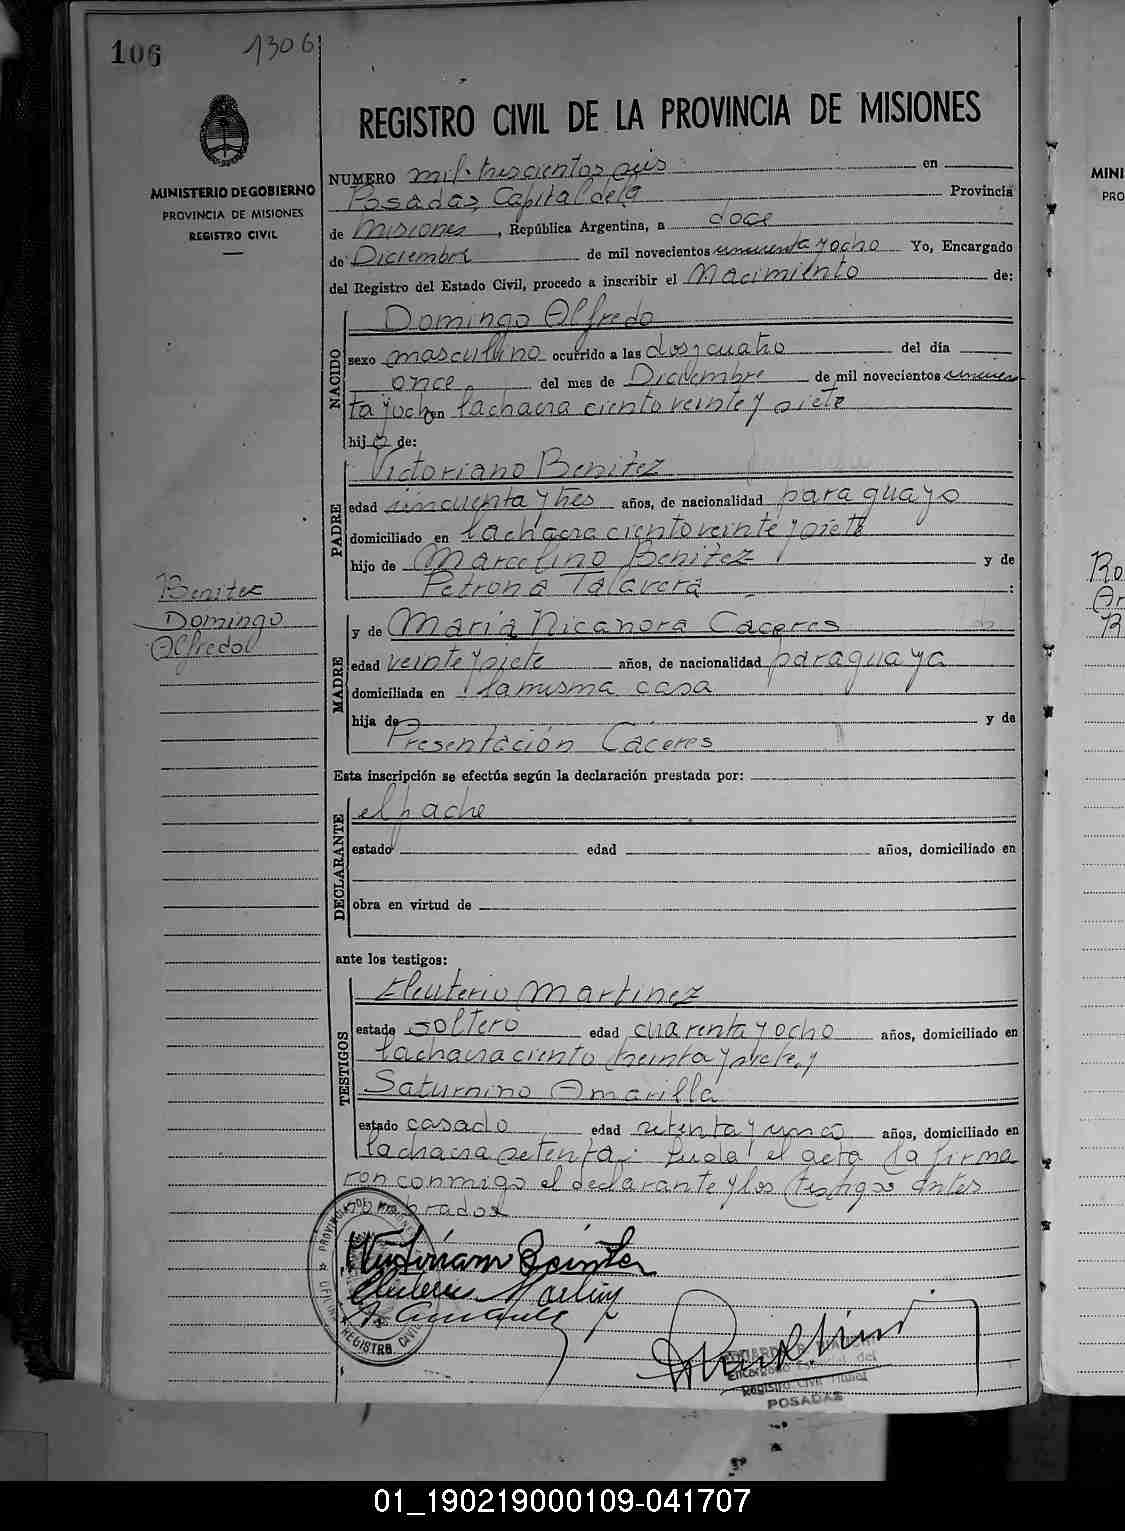 106
1306
MINISTERIO DE GOBIERNO
PROVINCIA DE MISIONES
REGISTRO CIVIL
Benitez
Domingo
Alfredo
REGISTRO CIVIL DE LA PROVINCIA DE MISIONES
NUMERO mil trescientos seis en
Posadas, Capital de la Provincia
de Misiones, República Argentina, a doce
de Diciembre de mil novecientos cincuenta y ocho Yo, Encargado
del Registro del Estado Civil, procedo a inscribir el Nacimiento de:
NACIDO
Domingo Alfredo
sexo masculino ocurrido a las dos y cuatro del día
once del mes de Diciembre de mil novecientos cincuen
ta y ocho en la chacra ciento veinte y siete
hijo de:
PADRE
Victoriano Benitez
edad cincuenta y tres años, de nacionalidad paraguayo
domiciliado en la chacra ciento veinte y siete
hijo de Marcelino Benitez y de
Petrona Talavera :
MADRE
y de Maria Nicanora Caceres
edad veinte y siete años, de nacionalidad paraguaya
domiciliada en la misma casa
hija de y de
Presentación Caceres
Esta inscripción se efectúa según la declaración prestada por:
DECLARANTE
el padre
estado edad años, domiciliado en
obra en virtud de
ante los testigos:
TESTIGOS
Eleuterio Martinez
estado soltero edad cuarenta y ocho años, domiciliado en
la chacra ciento treinta y siete, y
Saturnino Amarilla
estado casado edad setenta y cinco años, domiciliado en
la chacra setenta: el acta la firma
ron conmigo el declarante y los testigos antes
brados
PROVINCIA DE MISIONES
OFICINA REGISTRO CIVIL
Victoriano Benitez
Encargado del
Registro Civil
POSADAS
MINI
PRO
01_190219000109-041707